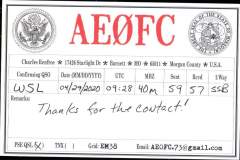 AEØFC
Charles Renfroe * 17426 Starlight Dr * Barnett * MO * 65011 * Morgan County * U.S.A.
Confirming QSO Date (MM/DD/YYYY) UTC MHZ Sent Recd 2 Way
WSL 04/29/2020 09:28 40m 59 57 SSB
Remarks:
Thanks for the contact!
PSE QSL TNX Grid: EM38 Email: AE0FC.73@gmail.com